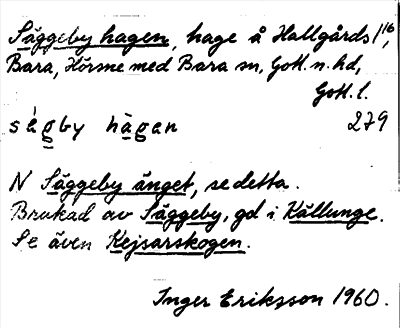 Säggeby hagen, hage å Hallgårds 1/16,
Bara, Hörsne med Bara sn, Gotl. n. hd,
Gotl. l.
ság̲by hàg̲an 279
N Säggeby änget, se detta.
Brukad av Säggeby, gd i Källunge.
Se även Kejsarskogen.
Inger Eriksson 1960.